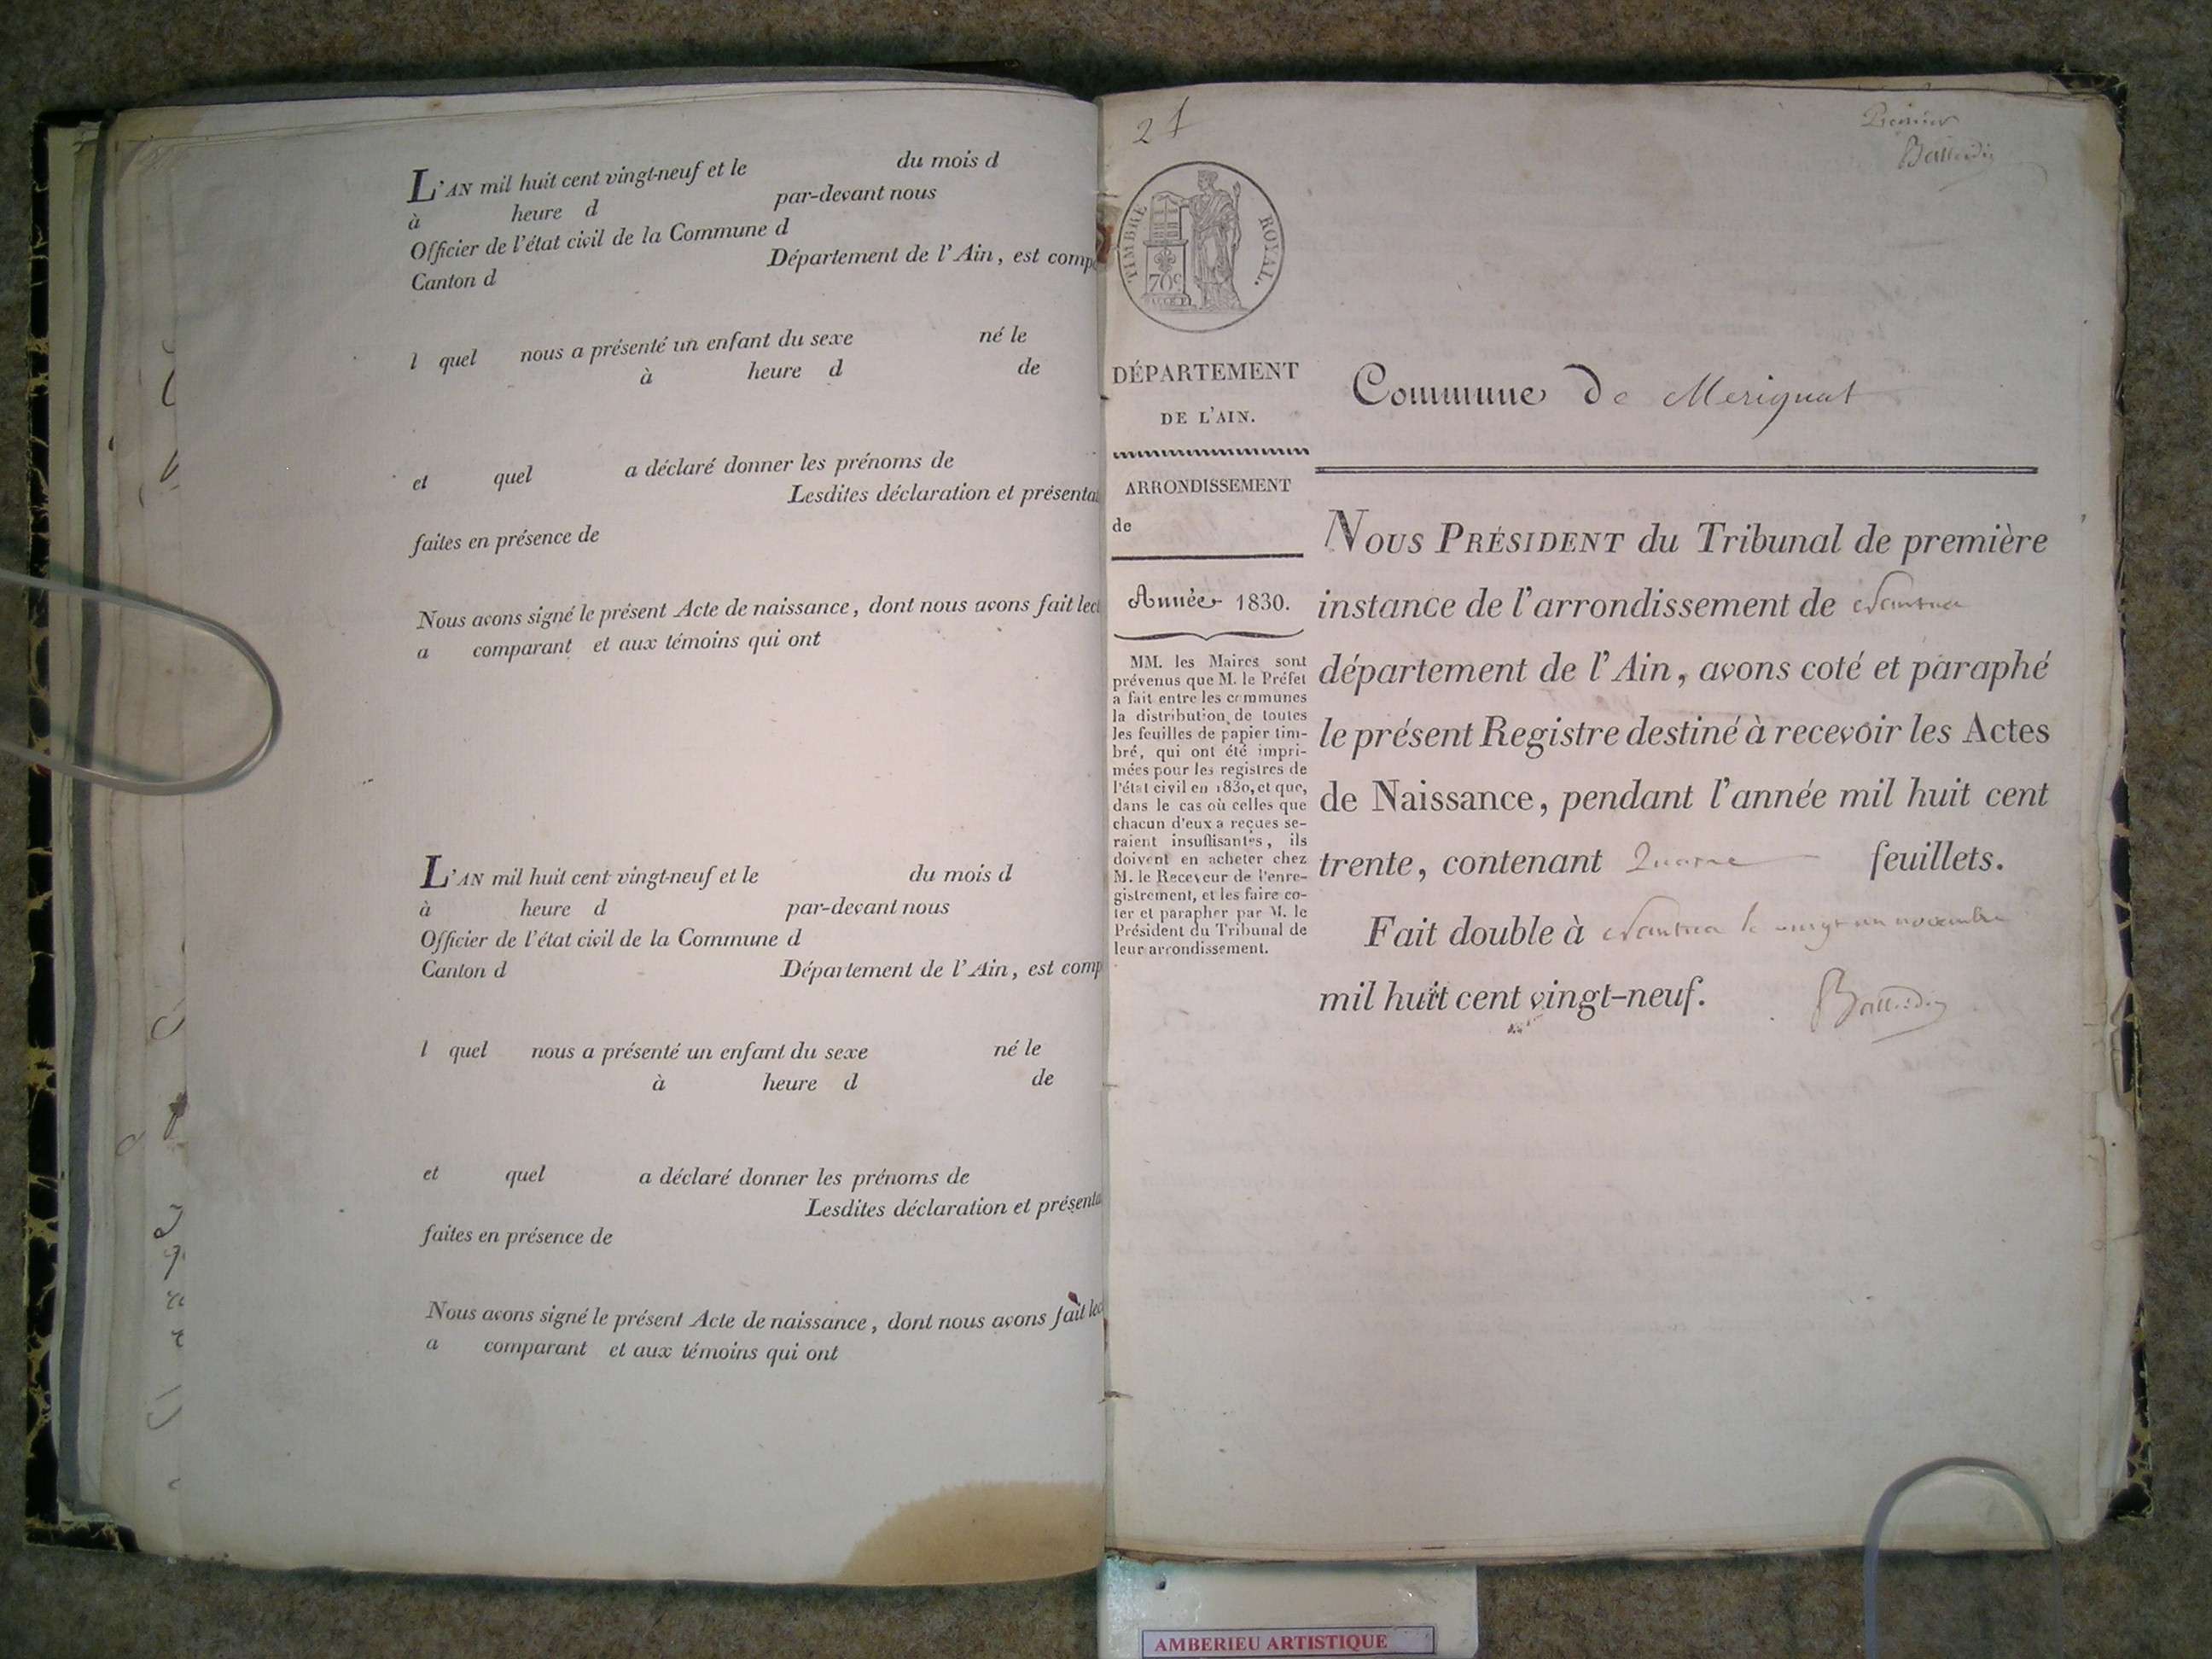 L'AN mil huit cent vingt-neuf et le du mois d
à heure d par-devant nous
Officier de l'état civil de la Commune d
Canton d Département de l'Ain, est comp
l quel nous a présenté un enfant du sexe né le
à heure d de
et quel a déclaré donner les prénoms de
Lesdites déclaration et présenta
faites en présence de
Nous avons signé le présent Acte de naissance, dont nous avons fait lect
a comparant et aux témoins qui ont
L'AN mil huit cent vingt-neuf et le du mois d
à heure d par-devant nous
Officier de l'état civil de la Commune d
Canton d Département de l'Ain, est comp
l quel nous a présenté un enfant du sexe né le
à heure d de
et quel a déclaré donner les prénoms de
Lesdites déclaration et présenta
faites en présence de
Nous avons signé le présent Acte de naissance, dont nous avons fait lec
a comparant et aux témoins qui ont
21
Premier
TIMBRE ROYAL.
70c
DÉPARTEMENT
DE L'AIN.
ARRONDISSEMENT
de
Année 1830.
MM. les Maires sont
prévenus que M. le Préfet
a fait entre les communes
la distribution de toutes
les feuilles de papier tim-
bré, qui ont été impri-
mées pour les registres de
l'état civil en 1830, et que,
dans le cas où celles que
chacun d'eux a reçues se-
raient insuffisantes, ils
doivent en acheter chez
M. le Receveur de l'enre-
gistrement, et les faire co-
ter et parapher par M. le
Président du Tribunal de
leur arrondissement.
Commune de Merignat
NOUS PRÉSIDENT du Tribunal de première
instance de l'arrondissement de Nantua
département de l'Ain, avons coté et paraphé
le présent Registre destiné à recevoir les Actes
de Naissance, pendant l'année mil huit cent
trente, contenant Quatre feuillets.
Fait double à Nantua le vingt un novembre
mil huit cent vingt-neuf.
AMBERIEU ARTISTIQUE